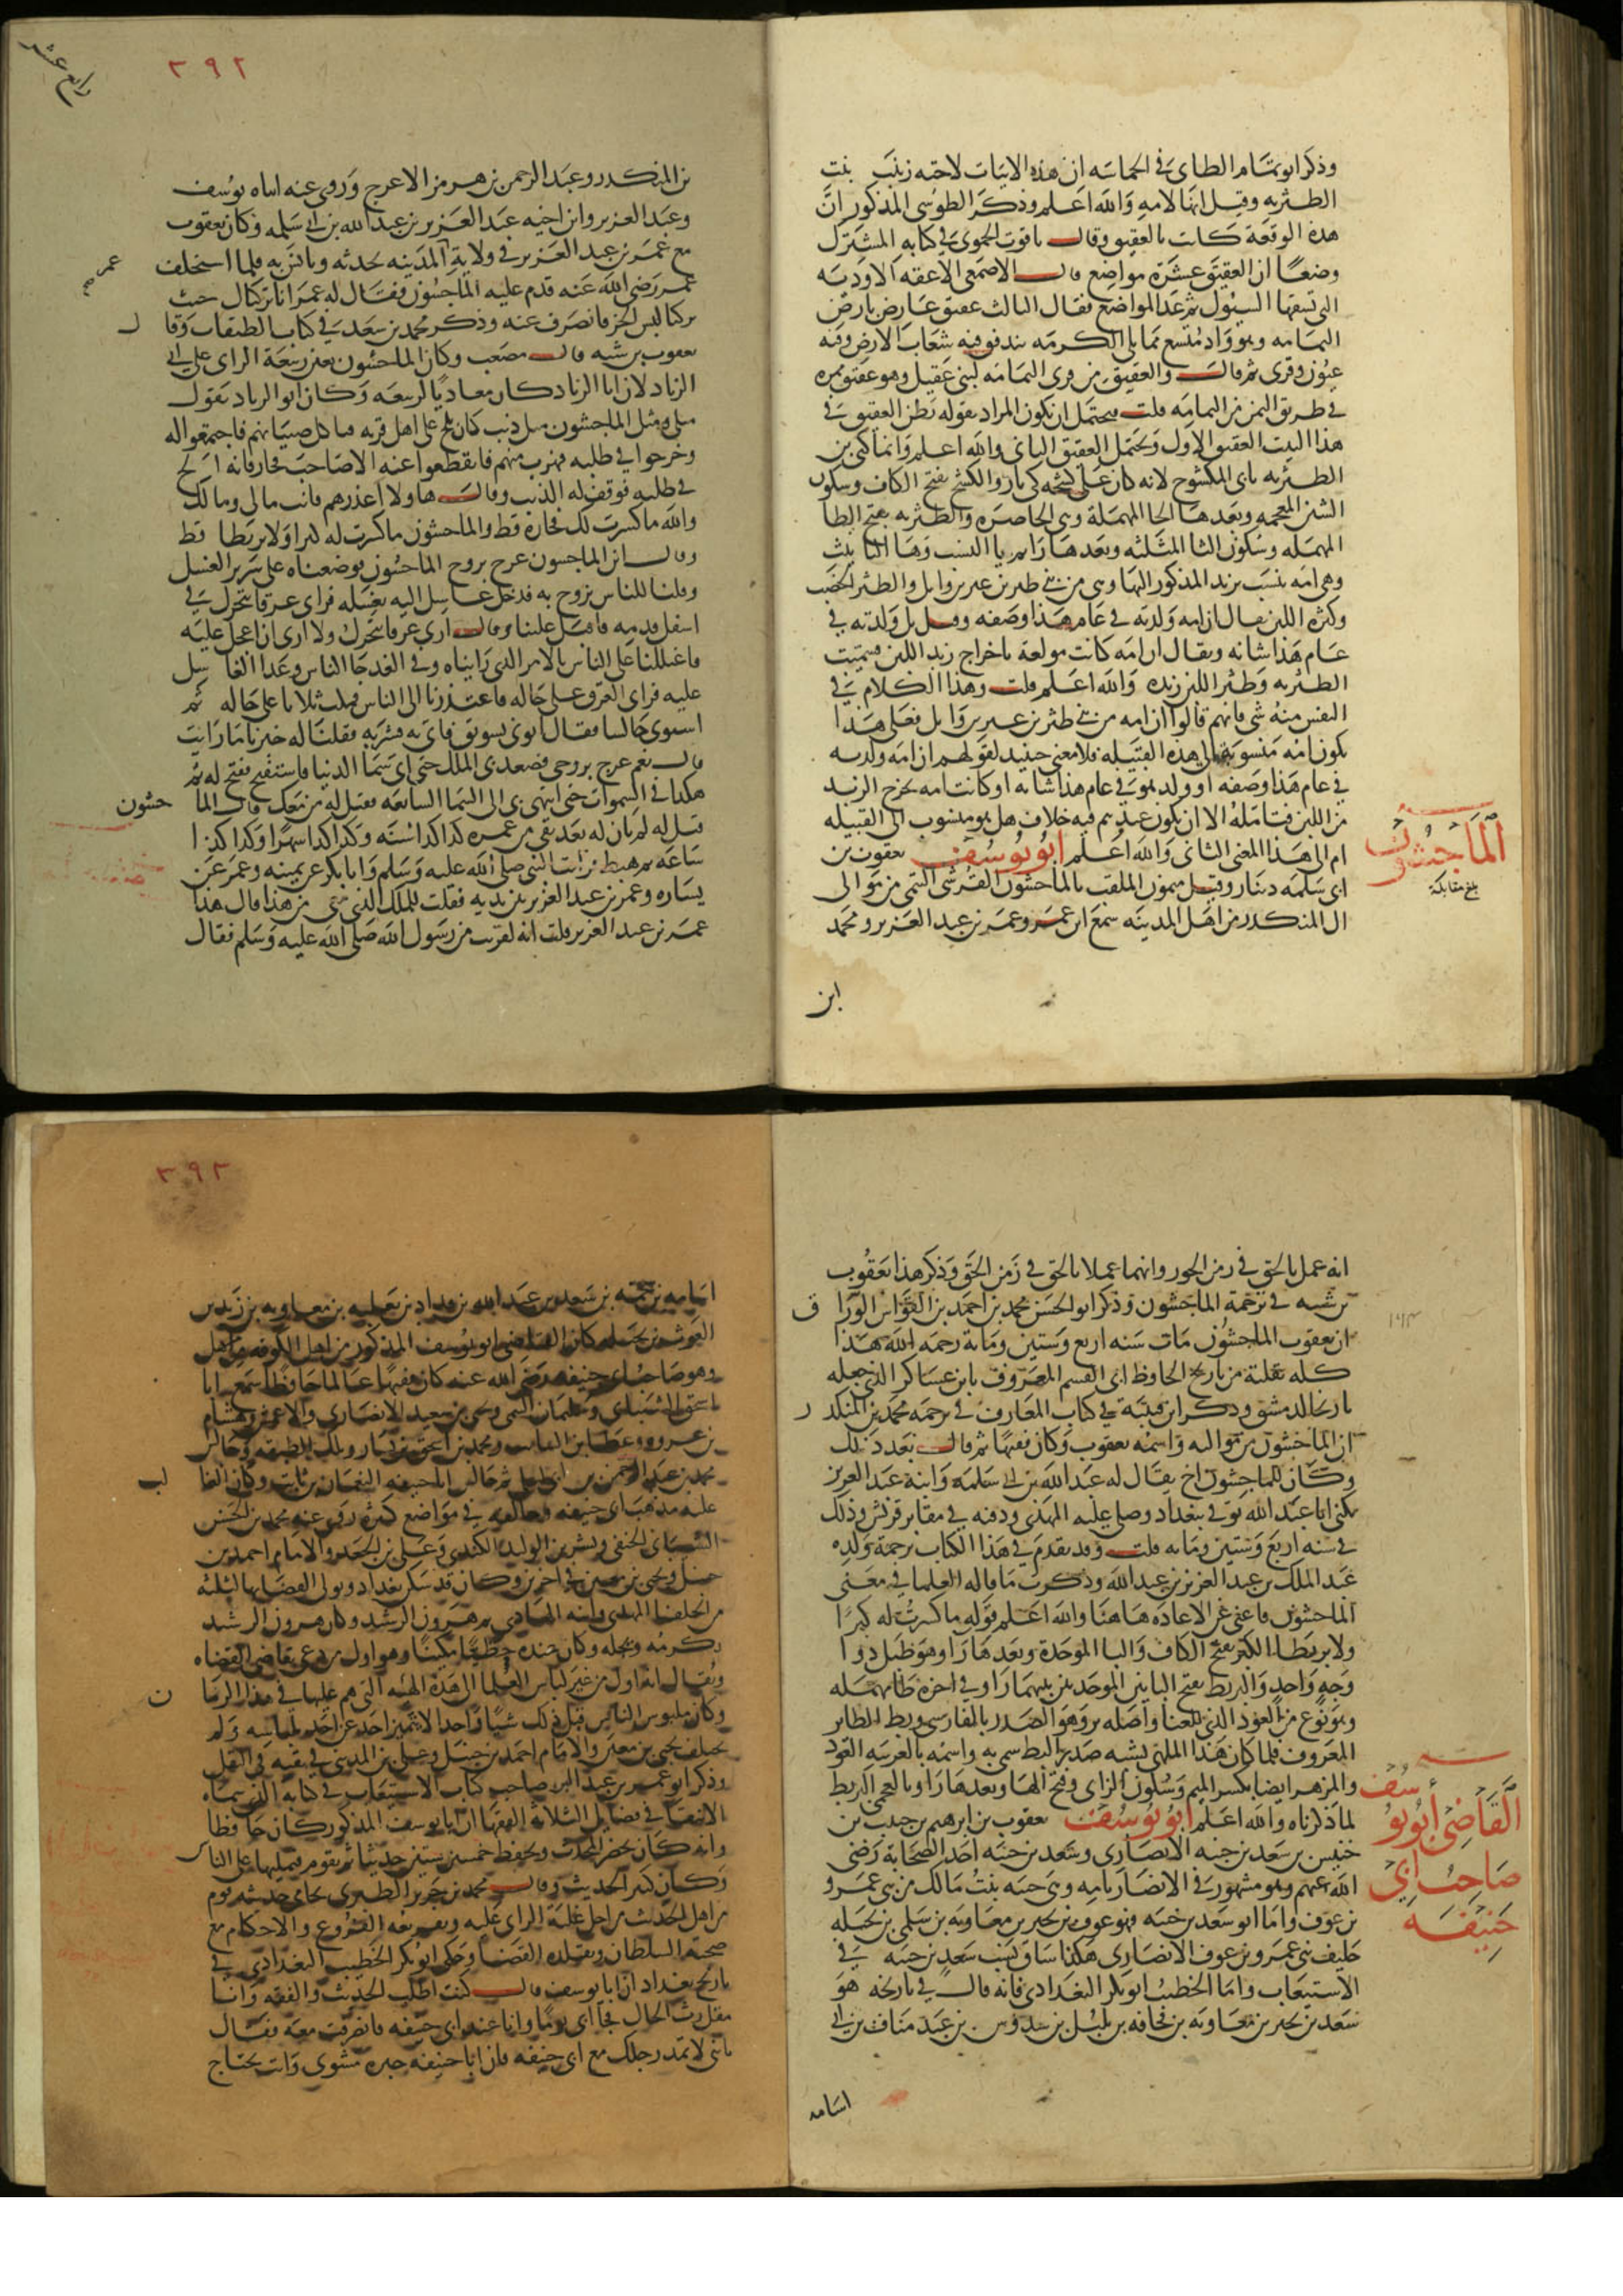 وذكر ابو تمام الطاى فى الحماسه ان هذه الابيات لاخته زينب بنت
الطثريه وقيل انها لامه والله اعلم وذكر الطوسى المذكور ان
هذه الوقعة كانت بالعقيق وقال ياقوت الحموى فى كتابه المشترك
وضعا ان العقيق عشرة مواضع قال الاصمعى الاعقه الاوديه
التى تشقها السيول ثم عد المواضع فقال الثالث عقيق عارض بارض
اليمامه وهو واد متسع مما يلى الكرمه يتدفق فيه شعاب الارض وفيه
عيون وقرى ثم قال والعقيق من قرى اليمامه لبنى عقيل وهو عقيق نمره
فى طريق اليمن من اليمامه قلت فيحتمل ان يكون المراد بقوله بطن العقيق فى
هذا البيت العقيق الاول ويحتمل العقيق الثانى والله اعلم وانما كنى بن
الطثريه بابى المكشوح لانه كان على كشحه كى نار والكشح بفتح الكاف وسكون
الشين المعجمه وبعدها الحا المهمله وهى الخاصره والطثريه بفتح الطا
المهمله وسكون الثا المثلثه وبعدها را ثم يا النسب وها التانيث
وهى امه ينسب يزيد المذكور اليها وهى من بنى طثر بن عنز بن وايل والطثر الخصب
وكثرة اللبن يقال ان امه ولدته فى عام هذا وصفه وقيل بل ولدته فى
عام هذا شانه ويقال ان امه كانت مولعة باخراج زبد اللبن فسميت
الطثريه وطثر اللبن زبده والله اعلم قلت وهذا الكلام فى
النفس منه شى فانهم قالوا ان امه من بنى طثر بن عنز بن وايل فعلى هذا
تكون امه منسوبة الى هذه القبيله فلا معنى حينيذ لقولهم ان امه ولدته
فى عام هذا وصفه او ولد هو فى عام هذا شانه او كانت امه تخرج الزبد
من اللبن فتامله الا ان يكون عندهم فيه خلاف هل هو منسوب الى القبيله
ام الى هذا المعنى الثانى والله اعلم ابو يوسف يعقوب بن
ابى سلمه دينار وقيل ميمون الملقب بالماجشون القرشى التيمى من موالى
ال المنكدر من اهل المدينه سمع ابن عمر وعمر بن عبد العزيز ومحمد
الماجشون
بلغ مقابلة
ابن
رابع عشر
٣٩٢
بن المنكدر وعبد الرحمن بن هرمز الاعرج وروى عنه ابناه يوسف
وعبد العزيز وابن اخيه عبد العزيز بن عبد الله بن ابى سلمه وكان يعقوب
مع عمر بن عبد العزيز فى ولاية المدينه يحدثه ويانس به فلما استخلف
عمر رضى الله عنه قدم عليه الماجشون فقال له عمر انا تركناك حيث
تركنا لبس الخز فانصرف عنه وذكر محمد بن سعد فى كتاب الطبقات وقال
يعقوب بن شيبه قال مصعب وكان الماجشون يعين ربيعة الراى على ابى
الزناد لان ابا الزناد كان معاديا لربيعه وكان ابو الزناد يقول
مثلى ومثل الماجشون مثل ذيب كان يلح على اهل قريه فياكل صبيانهم فاجتمعوا له
وخرجوا فى طلبه فهرب منهم فانقطعوا عنه الا صاحب فخار فانه الح
فى طلبه فوقف له الذيب وقال هاولا اعذرهم فانت مالى ومالك
والله ما كسرت لك فخارة قط والماجشون ما كسرت له كبرا ولا بربطا قط
وقال ابن الماجشون عرج بروح الماجشون فوضعناه على سرير الغسل
وقلنا للناس نروح به فدخل غاسل اليه يغسله فراى عرقا يتحرك فى
اسفل قدمه فاقبل علينا وقال ارى عرقا يتحرك ولا ارى ان اعجل عليه
فاعتللنا على الناس بالامر الذى رايناه وفى الغد جا الناس وغدا الغاسل
عليه فراى العرق على حاله فاعتذرنا الى الناس فمكث ثلاثا على حاله ثم
استوى جالسا فقال ايتونى بسويق فاتى به فشربه فقلنا له خبرنا ما رايت
قال نعم عرج بروحى فصعد بى الملك حتى اتى سما الدنيا فاستفتح ففتح له ثم
هكذا فى السموات حتى انتهى بى الى السما السابعه فقيل له من معك قال الماجشون
قيل له لم يان له بعد بقى من عمره كذا كذا سنه وكذا كذا شهرا وكذا كذا
ساعه ثم هبط فرايت النبى صلى الله عليه وسلم وابا بكر عن يمينه وعمر عن
يساره وعمر بن عبد العزيز بين يديه فقلت للملك الذى معى من هذا قال هذا
عمر بن عبد العزيز قلت انه لقريب من رسول الله صلى الله عليه وسلم فقال
انه عمل بالحق فى زمن الجور وانهما عملا بالحق فى زمن الحق وذكر هذا يعقوب
بن شيبه فى ترجمة الماجشون وذكر ابو الحسن محمد بن احمد بن القواس الوراق
ان يعقوب الماجشون مات سنه اربع وستين ومايه رحمه الله هذا
كله نقلته من تاريخ الحافظ ابى القسم المعروف بابن عساكر الذى جعله
تاريخا لدمشق وذكر ابن قتيبه فى كتاب المعارف فى ترجمه محمد بن المنكدر
ان الماجشون من مواليه واسمه يعقوب وكان فقيها ثم قال بعد ذلك
وكان للماجشون اخ يقال له عبد الله بن ابى سلمه وابنه عبد العزيز
يكنى ابا عبد الله توفى ببغداد وصلى عليه المهدى ودفنه فى مقابر قريش وذلك
فى سنه اربع وستين ومايه قلت وقد تقدم فى هذا الكتاب ترجمة ولده
عبد الملك بن عبد العزيز بن عبد الله وذكرت ما قاله العلما فى معنى
الماجشون فاغنى عن الاعاده هاهنا والله اعلم قوله ما كسرت له كبرا
ولا بربطا الكبر بفتح الكاف والبا الموحدة وبعدها را وهو طبل ذوا
وجه واحد والبربط بفتح الباين الموحدتين بينهما را وفى اخره طا مهمله
وهو نوع من العود الذى للغنا واصله بر وهو الصدر بالفارسى وبط الطاير
المعروف فلما كان هذا الملهى يشبه صدر البط سمى به واسمه بالعربيه العود
والمزهر ايضا بكسر الميم وسكون الزاى وفتح الها وبعدها را وبالعجمى البربط
لما ذكرناه والله اعلم ابو يوسف يعقوب بن ابرهيم بن حبيب بن
خنيس بن سعد بن حبته الانصارى وسعد بن حبته احد الصحابة رضى
الله عنهم وهو مشهور فى الانصار بامه وهى حبته بنت مالك من بنى عمرو
بن عوف واما ابو سعد بن حبته فهو عوف بن بحير بن معاويه بن سلمى بن بجيله
حليف بنى عمرو بن عوف الانصارى هكذا ساق نسب سعد بن حبته فى
الاستيعاب واما الخطيب ابو بكر البغدادى فانه قال فى تاريخه هو
سعد بن بحير بن معاويه بن قحافه بن بليل بن سدوس بن عبد مناف بن ابى
القاضى ابو يوسف
صاحب ابى
حنيفه
اسامه
٣٩٣
اسامه بن سحمه بن سعد بن عبد الله بن قداد بن ثعلبه بن معاويه بن زيد بن
الغوث بن بجيله كان القاضى ابو يوسف المذكور من اهل الكوفه
وهو صاحب ابى حنيفه رضى الله عنه كان فقيها عالما حافظا سمع ابا
اسحق الشيبانى وسليمان التيمى ويحيى بن سعيد الانصارى والاعمش وهشام
بن عروه وعطا بن السايب ومحمد بن اسحق بن يسار وتلك الطبقه وجالس
محمد بن عبد الرحمن بن ابى ليلى ثم جالس ابا حنيفه النعمان بن ثابت وكان الغالب
عليه مذهب ابى حنيفه وخالفه فى مواضع كثيره روى عنه محمد بن الحسن
الشيبانى الحنفى وبشر بن الوليد الكندى وعلى بن الجعد والامام احمد بن
حنبل ويحيى بن معين فى اخرين وكان قد سكن بغداد وتولى القضا بها لثلثه
من الخلفا المهدى وابنه الهادى ثم هرون الرشيد وكان هرون الرشيد
يكرمه ويجله وكان عنده حظيا مكينا وهو اول من دعى بقاضى القضاه
ويقال انه اول من غير لباس العلما الى هذه الهيئه التى هم عليها فى هذا الزمان
وكان ملبوس الناس قبل ذلك شيا واحدا لا يتميز احد عن احد بلباسه ولم
يختلف يحيى بن معين والامام احمد بن حنبل وعلى بن المدينى فى ثقته فى النقل
وذكر ابو عمر بن عبد البر صاحب كتاب الاستيعاب فى كتابه الذى سماه
الانتقا فى فضايل الثلاثة الفقها ان ابا يوسف المذكور كان حافظا
وانه كان يحضر المحدث ويحفظ خمسين ستين حديثا ثم يقوم فيمليها على الناس
وكان كثير الحديث وقال محمد بن جرير الطبرى تحامى حديثه قوم
من اهل الحديث من اجل غلبة الراى عليه وتفريعه الفروع والاحكام مع
صحبة السلطان وتقلده القضا وحكى ابو بكر الخطيب البغدادى فى
تاريخ بغداد ان ابا يوسف قال كنت اطلب الحديث والفقه وانا
مقل رث الحال فجا ابى يوما وانا عند ابى حنيفه فانصرفت معه فقال
يا بنى لا تمد رجلك مع ابى حنيفه فان ابا حنيفه خبزه مشوى وانت تحتاج